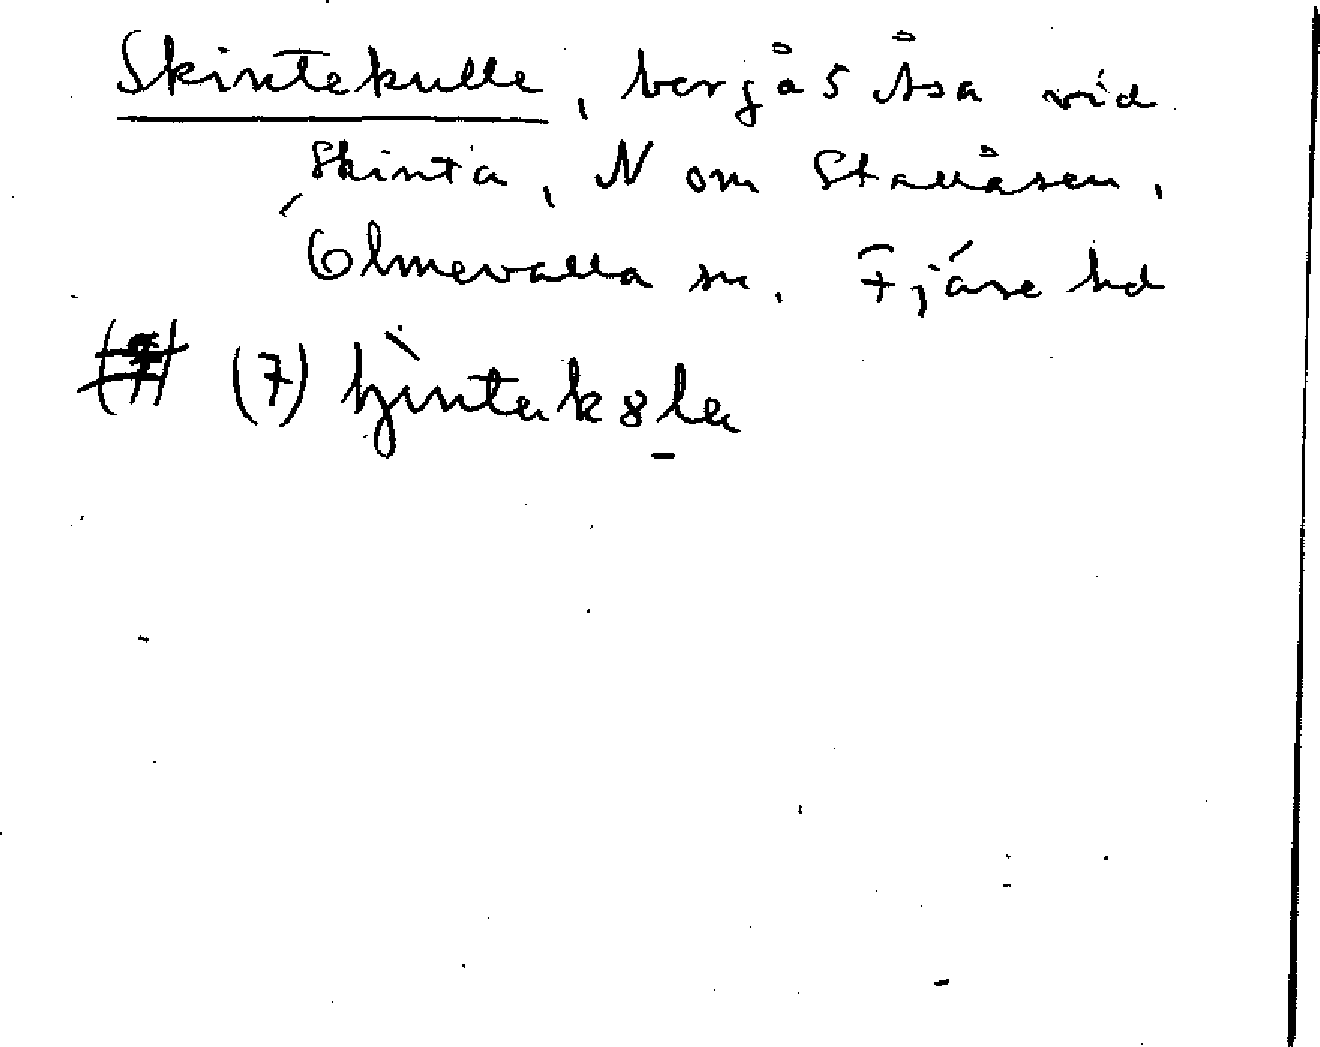 Skintekulle, bergås Åsa vid
Skinta, N om Stallåsen,
Ölmevalla sn, Fjäre hd
(7)